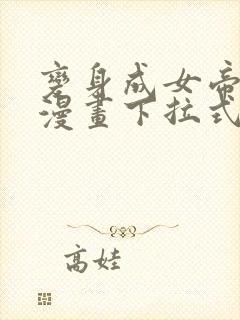 變身成女帝
漫畫下拉式
高娃